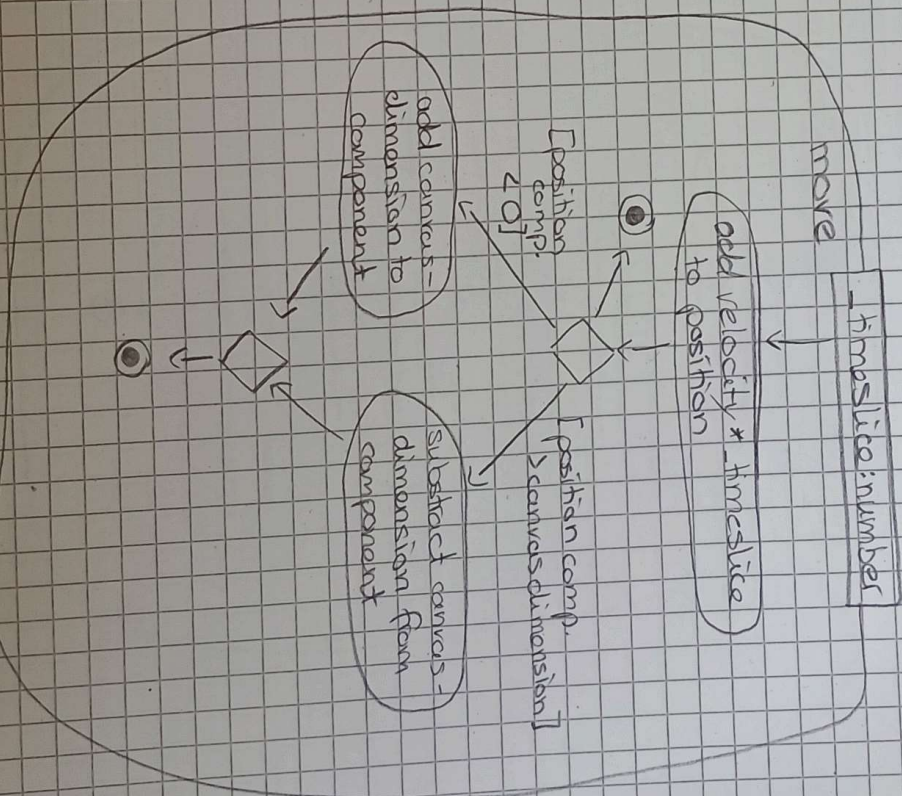 move
_timeslice:number
add velocity*_timeslice
to position
[position
comp.
<0]
[position comp.
>canvasdimension]
add canvas-
dimension to
component
substract canvas-
dimension from
component